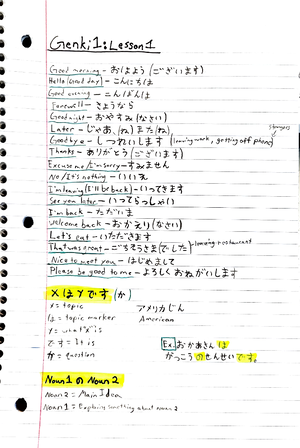 Genki 1: Lesson 1
Good morning - おはよう(ございます)
Hello (Good day) - こんにちは
Good evening - こんばんは
Farewell - さようなら
Goodnight - おやすみ(なさい)
Later - じゃあ、(ね) またね、
Goodbye - しつれいします (leaving work, getting off phone)
strangers
Thanks - ありがとう(ございます)
Excuse me/I'm sorry - すみません
No/It's nothing - いいえ
I'm leaving (I'll be back) - いってきます
See you later - いってらっしゃい
I'm back - ただいま
Welcome back - おかえり(なさい)
Let's eat - いただきます
That was great - ごちそうさま(でした) - leaving restaurant
Nice to meet you - はじめまして
Please be good to me - よろしくおねがいします
XはYです (か)
X = topic
は = topic marker
Y = what "X" is
です = It is
か = question
アメリカじん
American
Ex. おかあさんは
がっこうのせんせいです。
Noun 1 の Noun 2
Noun 2 = Main Idea
Noun 1 = Explaining something about noun 2